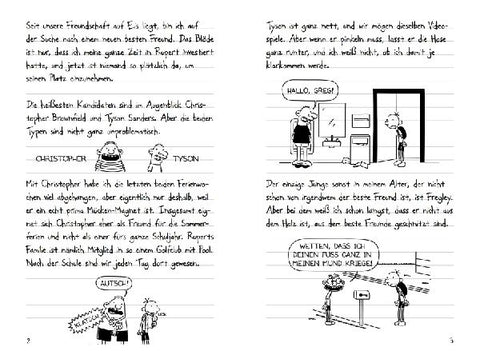 Seit unsere Freundschaft auf Eis liegt, bin ich auf
der Suche nach einem neuen besten Freund. Das Blöde
ist nur, dass ich meine ganze Zeit in Rupert investiert
hatte, und jetzt ist niemand so plötzlich da, um
seinen Platz einzunehmen.
Die heißesten Kandidaten sind im Augenblick Chris-
topher Brownfield und Tyson Sanders. Aber die beiden
Typen sind nicht ganz unproblematisch.
CHRISTOPHER
TYSON
Mit Christopher habe ich die letzten beiden Ferienwo-
chen viel abgehangen, aber eigentlich nur deshalb, weil
er ein echt prima Mücken-Magnet ist. Insgesamt eig-
net sich Christopher eher als Freund für die Sommer-
ferien und nicht als einer fürs ganze Schuljahr. Ruperts
Familie ist nämlich Mitglied in so einem Golfclub mit Pool.
Nach der Schule sind wir jeden Tag dort gewesen.
AUTSCH!
KLATSCH
2
Tyson ist ganz nett, und wir mögen dieselben Video-
spiele. Aber wenn er pinkeln muss, lässt er die Hose
ganz runter, und ich weiß nicht, ob ich damit je
klarkommen werde.
HALLO, GREG!
Der einzige Junge sonst in meinem Alter, der nicht
schon von irgendwem der beste Freund ist, ist Fregley.
Aber bei dem weiß ich schon längst, dass er nicht aus
dem Holz ist, aus dem beste Freunde geschnitzt sind.
WETTEN, DASS ICH
DEINEN FUSS GANZ IN
MEINEN MUND KRIEGE!